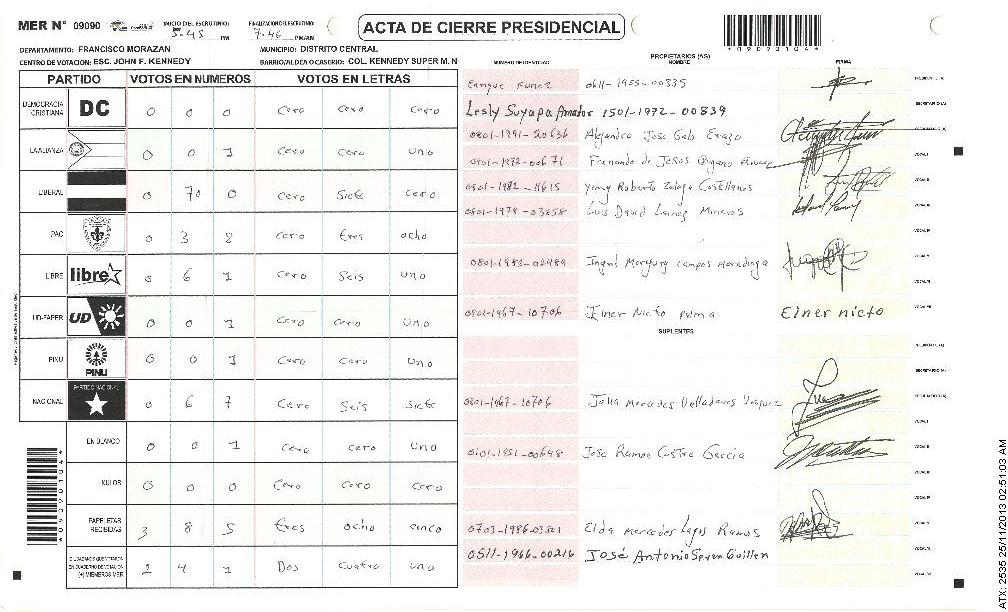 MER N° 09090 INICIO DEL ESCRUTINIO: 5-45 PM FINALIZACION DEL ESCRUTINIO: 7-46 PM/AM ACTA DE CIERRE PRESIDENCIAL
DEPARTAMENTO: FRANCISCO MORAZAN MUNICIPIO: DISTRITO CENTRAL
CENTRO DE VOTACION: ESC. JOHN F. KENNEDY BARRIO/ALDEA O CASERIO: COL. KENNEDY SUPER M. N
NUMERO DE IDENTIDAD PROPIETARIOS (AS) NOMBRE FIRMA
PARTIDO VOTOS EN NUMEROS VOTOS EN LETRAS
Enrique Funez 0611-1955-00335
DEMOCRACIA CRISTIANA DC 0 0 0 Cero Cero Cero
Lesly Suyapa Amador 1501-1972-00839
0801-1991-20636 Alejandra Jose Galo Erazo
LA ALIANZA 0 0 1 Cero Cero uno
0801-1972-00671 Fernando de Jesus
LIBERAL 0 70 0 Cero Siete Cero
0801-1982-11615 Yimy Roberto Zelaya Castellanos
0801-1979-03258 Luis David Lainez
PAC 0 3 8 Cero tres ocho
LIBRE libre 0 6 1 Cero Seis uno
0801-1982-02989 Ingrid campos
UD-FAPER UD 0 0 1 Cero Cero uno
0801-1967-10706 Einer Nieto Einer nieto
SUPLENTES
PINU PINU 0 0 1 Cero Cero uno
NACIONAL PARTIDO NACIONAL 0 6 7 Cero Seis Siete
0801-1967-10706 Julia Mercedes Valladares Vasquez
EN BLANCO 0 0 1 Cero Cero uno
0101-1951-00648 Jose Ramon Castro Garcia
NULOS 0 0 0 Cero Cero Cero
PAPELETAS RECIBIDAS 3 8 5 tres ocho cinco
0703-1986-03301 Elda Mercedes Lagos Ramos
0511-1966-00216 José Antonio Guillen
CIUDADANOS QUE VOTARON EN CUADERNO DE VOTACION (+) MIEMBROS MER 2 4 1 Dos Cuatro uno
ATX: 2535 25/11/2013 02:51:03 AM